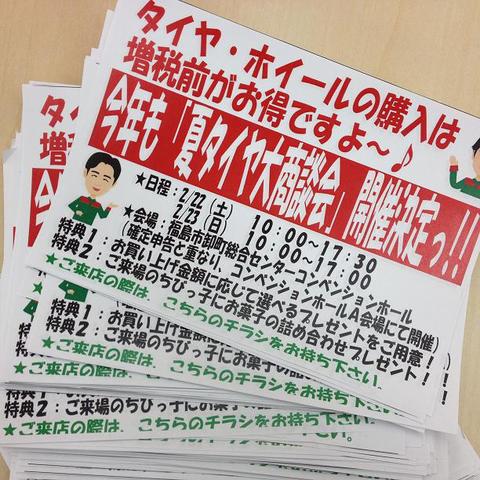 タイヤ・ホイールの購入は
増税前がお得ですよ～♪
今年も「夏タイヤ大商談会」開催決定っ!!
★日程：2/22（土） 10：00～17：30
2/23（日） 10：00～17：00
★会場：福島市卸町総合センターコンベンションホール
（確定申告と重なり、コンベンションホールA会場にて開催）
特典1：お買い上げ金額に応じて選べるプレゼントをご用意！
特典2：ご来場のちびっ子にお菓子の詰め合わせプレゼント！
★ご来店の際は、こちらのチラシをお持ち下さい。
タイ
増税
今年
特典1：お買い上げ金額
特典2：ご来場のちびっ子にお菓子の
★ご来店の際は、こちらのチラシをお持ち下さい。
特典1
特典2：ご来場のちびっ子にお菓子の詰
★ご来店の際は、こちらのチラシをお持ち下さい。